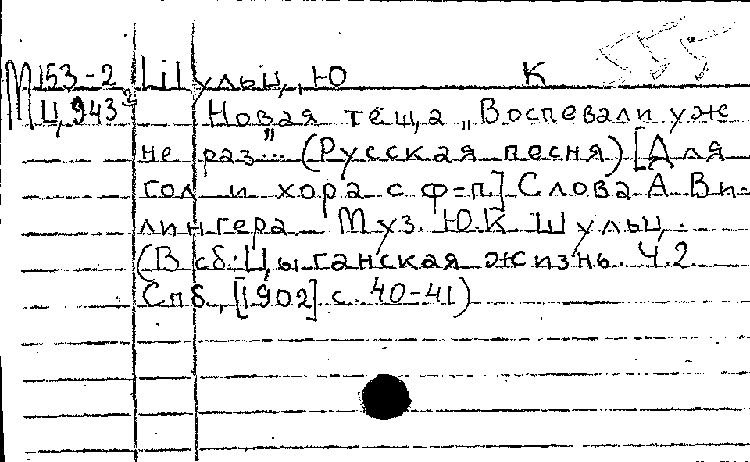 М153-2 Шульц, Ю К
Ц943² Новая теща „Воспевали уж
не раз"... (Русская песня) [Для
гол и хора с ф=п.] Слова А Ви-
лингера Муз. Ю.К Шульц.
(В сб: Цыганская жизнь. Ч.2.
Спб, [1902] с. 40-41)